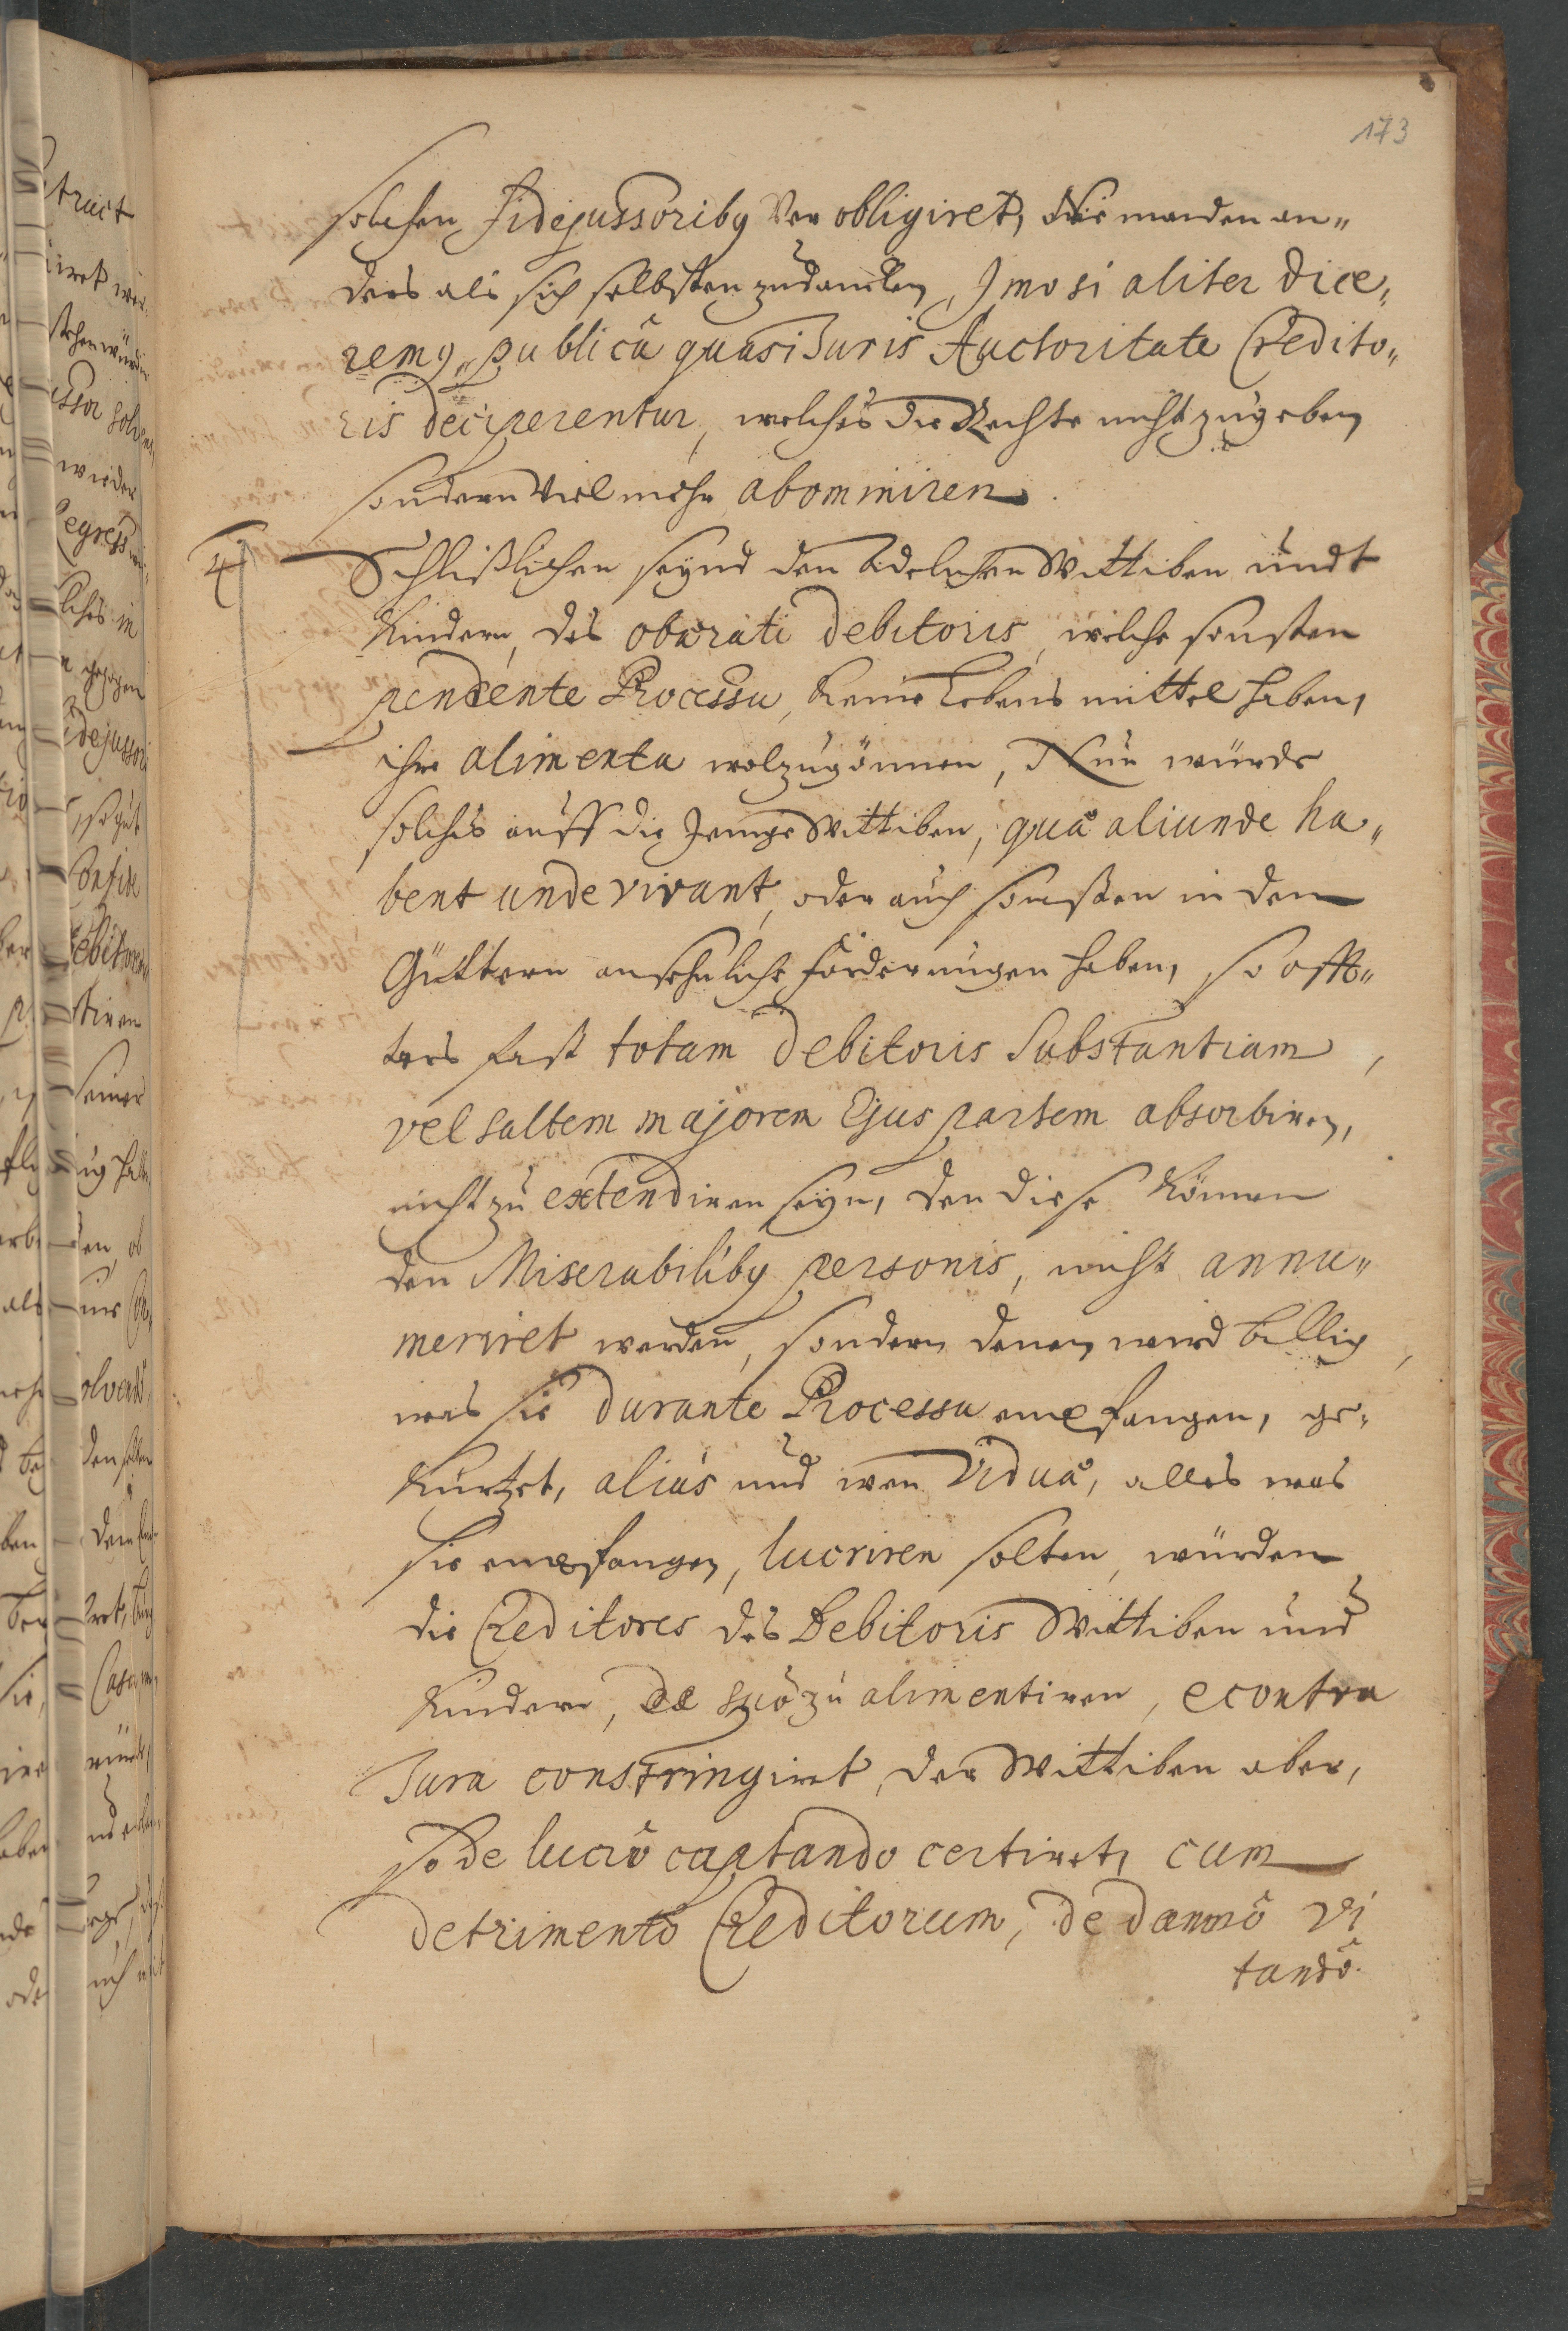 173
solchen Fidejussoribq Ver obligiret, Niemanden an„
ders als sich selbsten zudancken, Imo si aliter dice„
remq, publicâ quasi Juris Auctoritate Credito„
ris deciperentur, welches die Rechte nicht zugeben
sondern Viel mehr abominiren.
4 Schlißlichen seynd den Adelichen Wittiben undt
Kindern, des obærati debitoris, welche sonsten
pendente Processu, keine Lebens mittel haben,
ihre alimenta wolzugönnen, Nur würde
solches auff die Jenige Wittiben, quæ aliunde ha„
bent unde vivant, oder auch sonsten in den
Güttern ansehnliche forderungen haben, so offt„
ters fast totam Debitoris Substantiam,
vel saltem majorem Ejus partem absorbiren,
nicht zu extendiren seyn, den diese können
den Miserabilibq personis, nicht annu„
meriret werden, sondern denen wird billig,
was sie durante Processu empfangen, ge„
kürtzet, alias und wen Viduæ, alles was
sie empfangen, lucriren solten, würden
die Creditores des Debitoris Wittiben und
Kindern, de suo zu alimentiren, econtra
Jura constringiret, der Wittiben aber,
so de lucrô captando certiret, cum
detrimentô Creditorum, de damnô vi
tandô.